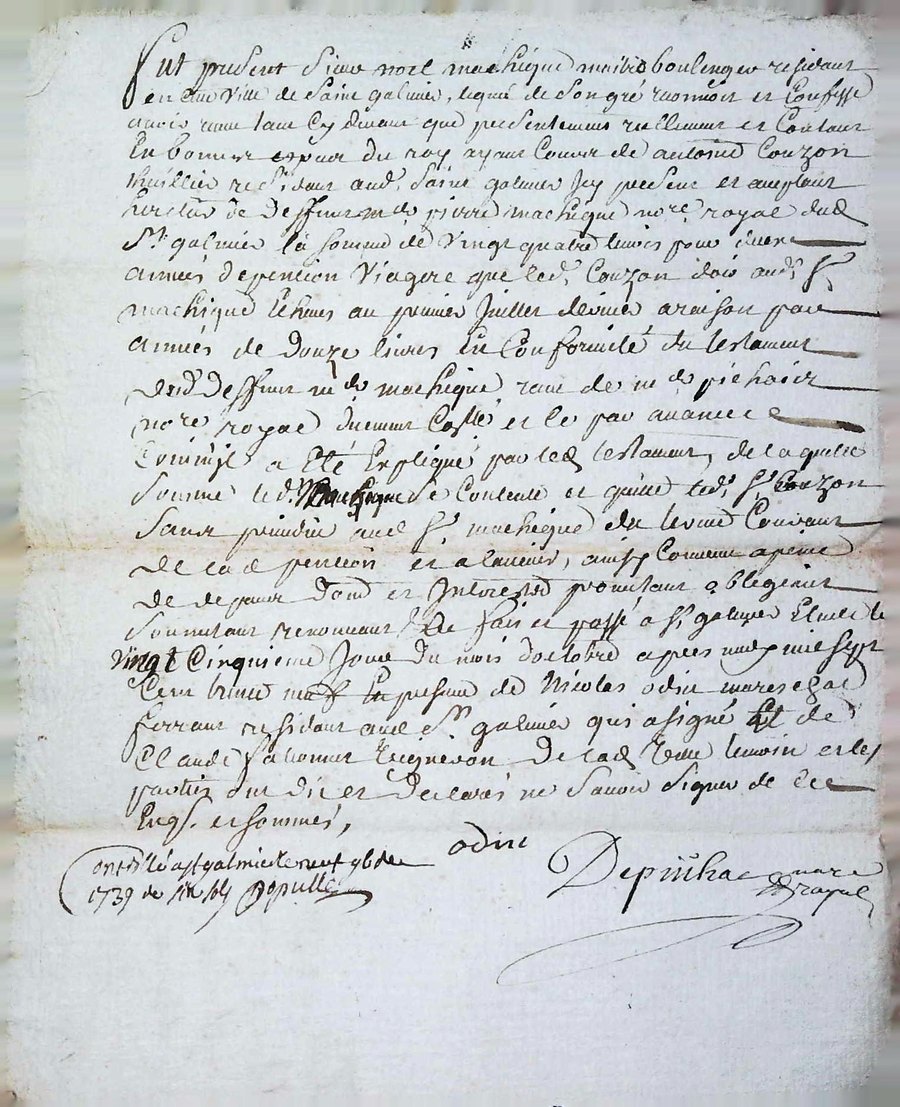 fut present Sieur noel machique maitre boulenger residant
en cette Ville de Saint galmier, lequel de Son gré reconnoit et Confesse
avoir receu tant Cy devant que presentement reellement et Contant
En bonnes especes du roy ayant Cours de antoine Couzon
thuillier residant aud. Saint galmier Icy present et acceptant
heritier de deffunt me pierre machique nore royal dud
St galmier la somme de Vingt quatre livres pour deux
années de pention Viagere que led. Couzon doit aud. Sr
machique Echues au premier Juillet dernier a raison par
années de douze livres En Conformité du testament
dud deffunt me machique receu de me pichoir
nore royal et le par avance
a Eté Expliqué par led testament, de laquelle
Somme led. Machique Se Contente et quitte led. Sr Couzon
Sans prejudice aud Sr machique du terme Courant
de lad pention et a lavenir, ainsy Convenu a peine
de depens dom et Interests pourtant obligeant
Soumettant renonceant &c fait et passé a St galmier Etude le
Vingt Cinquieme Jour du mois d'octobre apres midy mil sept
Cent trente neuf En presence de Nicolas odin mareschal
ferrant residant aud St galmier qui a signé Et de
Claude Vigneron de lad Ville temoin et les
parties ont dit et declarés ne Savoir Signer de Ce
Enqs. et sommés,
odin
Controllé a st galmier le neuf 9bre
1739 de six sols
nore
royal